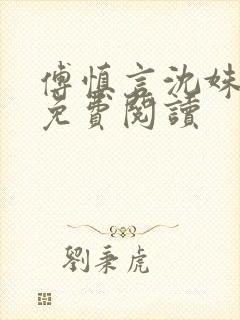 傅慎言沈姝
免費閱讀
劉秉虎